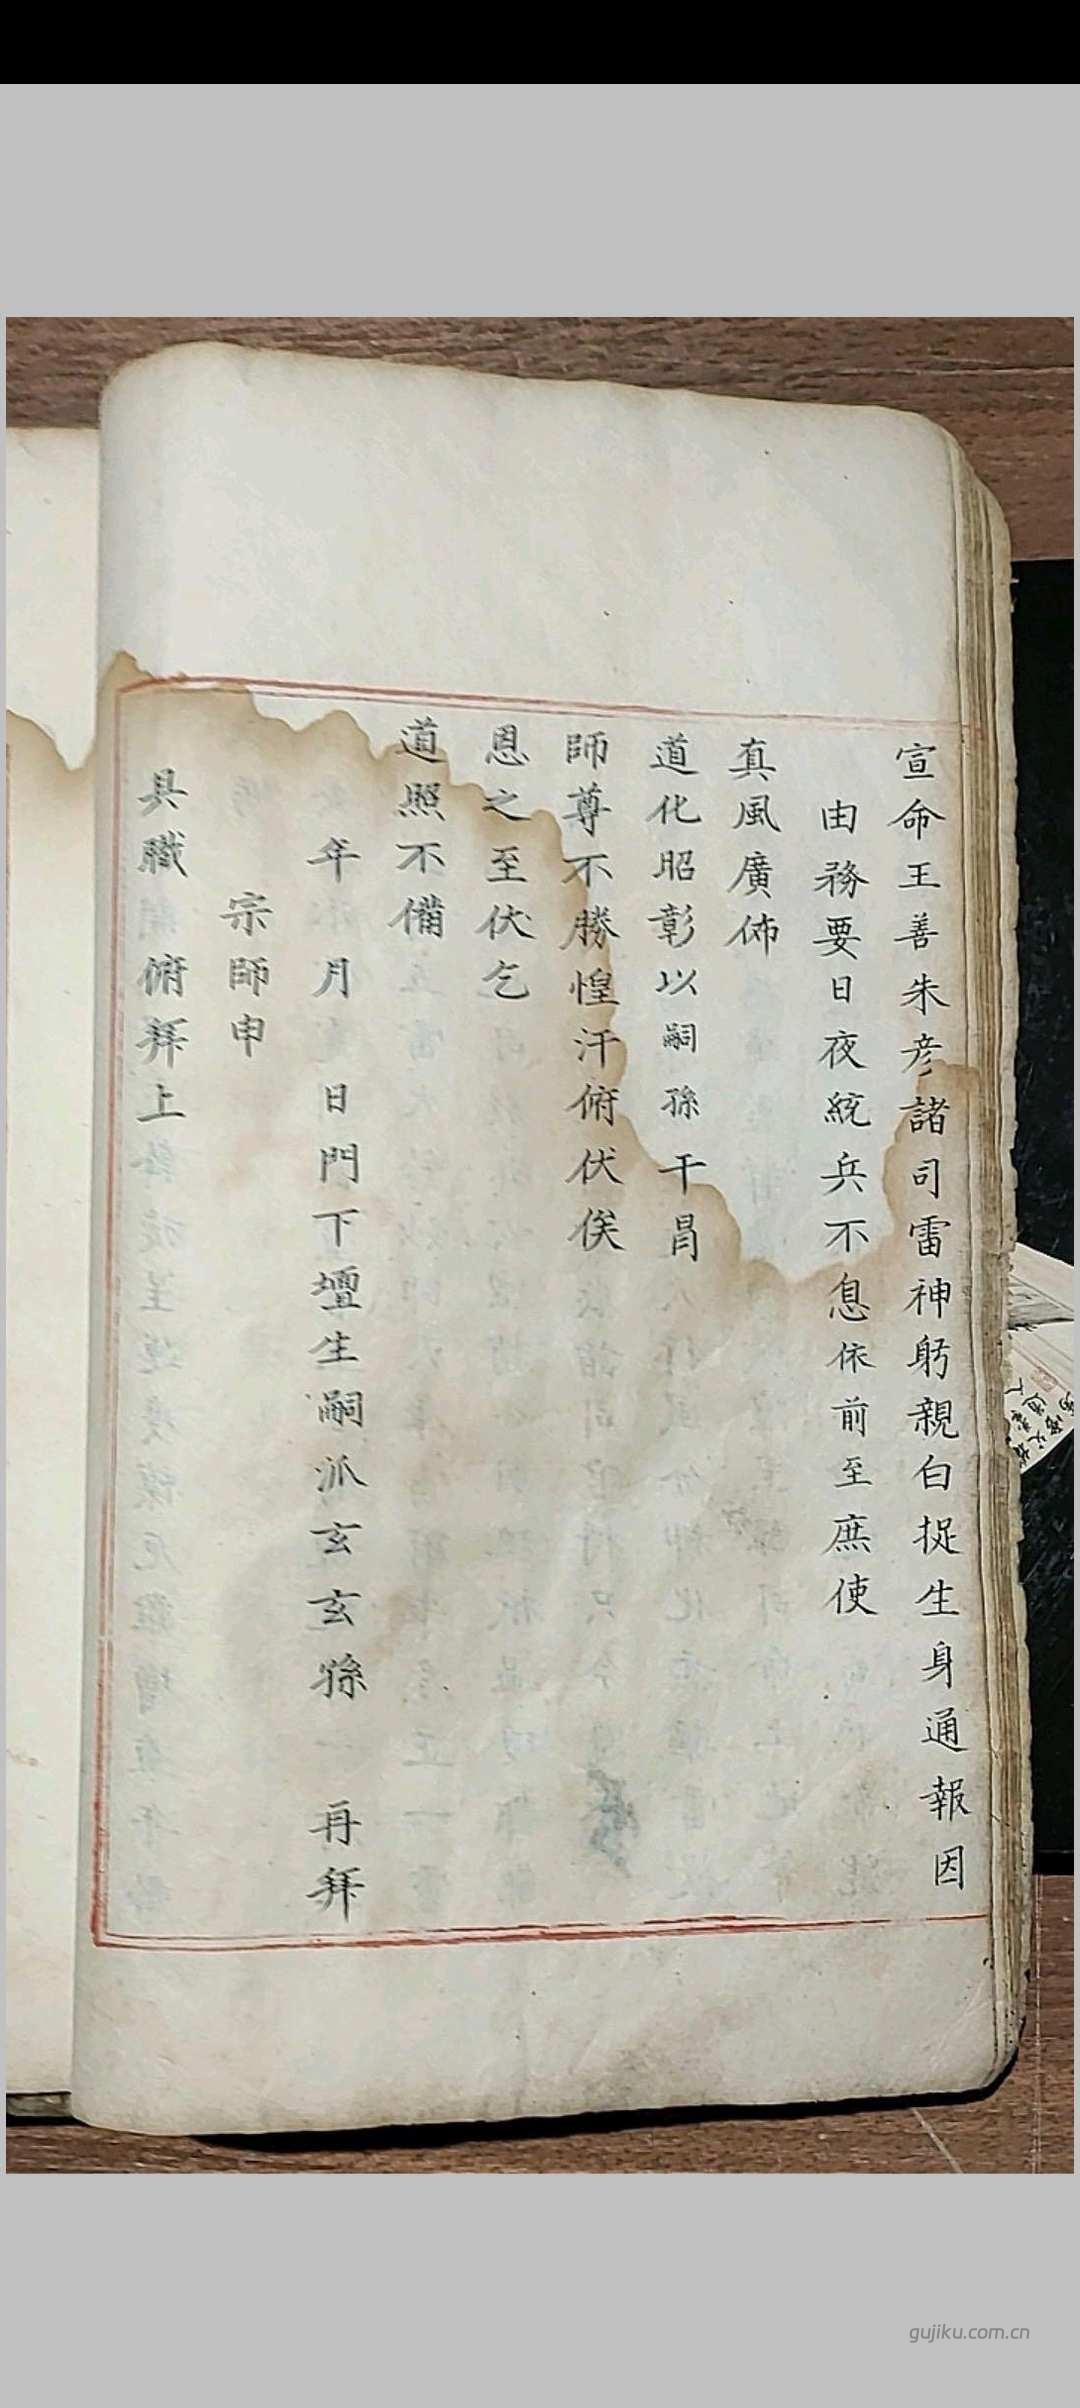 宣命王善朱彦諸司雷神躬親白捉生身通報因
由務要日夜統兵不息依前至庶使
真風廣佈
道化昭彰以嗣孫干冐
師尊不勝惶汗俯伏俟
恩之至伏乞
道照不備
年 月 日門下壇生嗣派玄玄孫 一 再拜
宗師申
具職 俯拜上
gujiku.com.cn